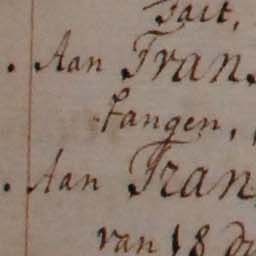 Fait,
. Aan Fran
tangen,
. Aan Fran
van 18 d